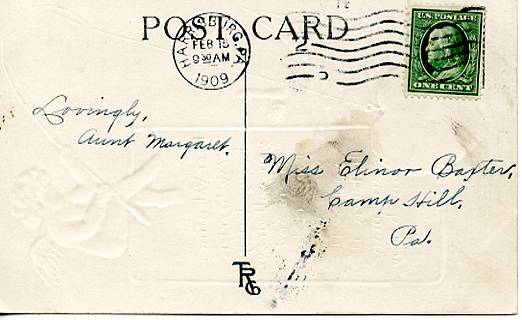 POST CARD
HARRISBURG, PA.
FEB 15
9 30 AM
1909
2
U.S. POSTAGE
ONE CENT
Lovingly,
Aunt Margaret.
Miss Elinor Baxter,
Camp Hill,
Pa.